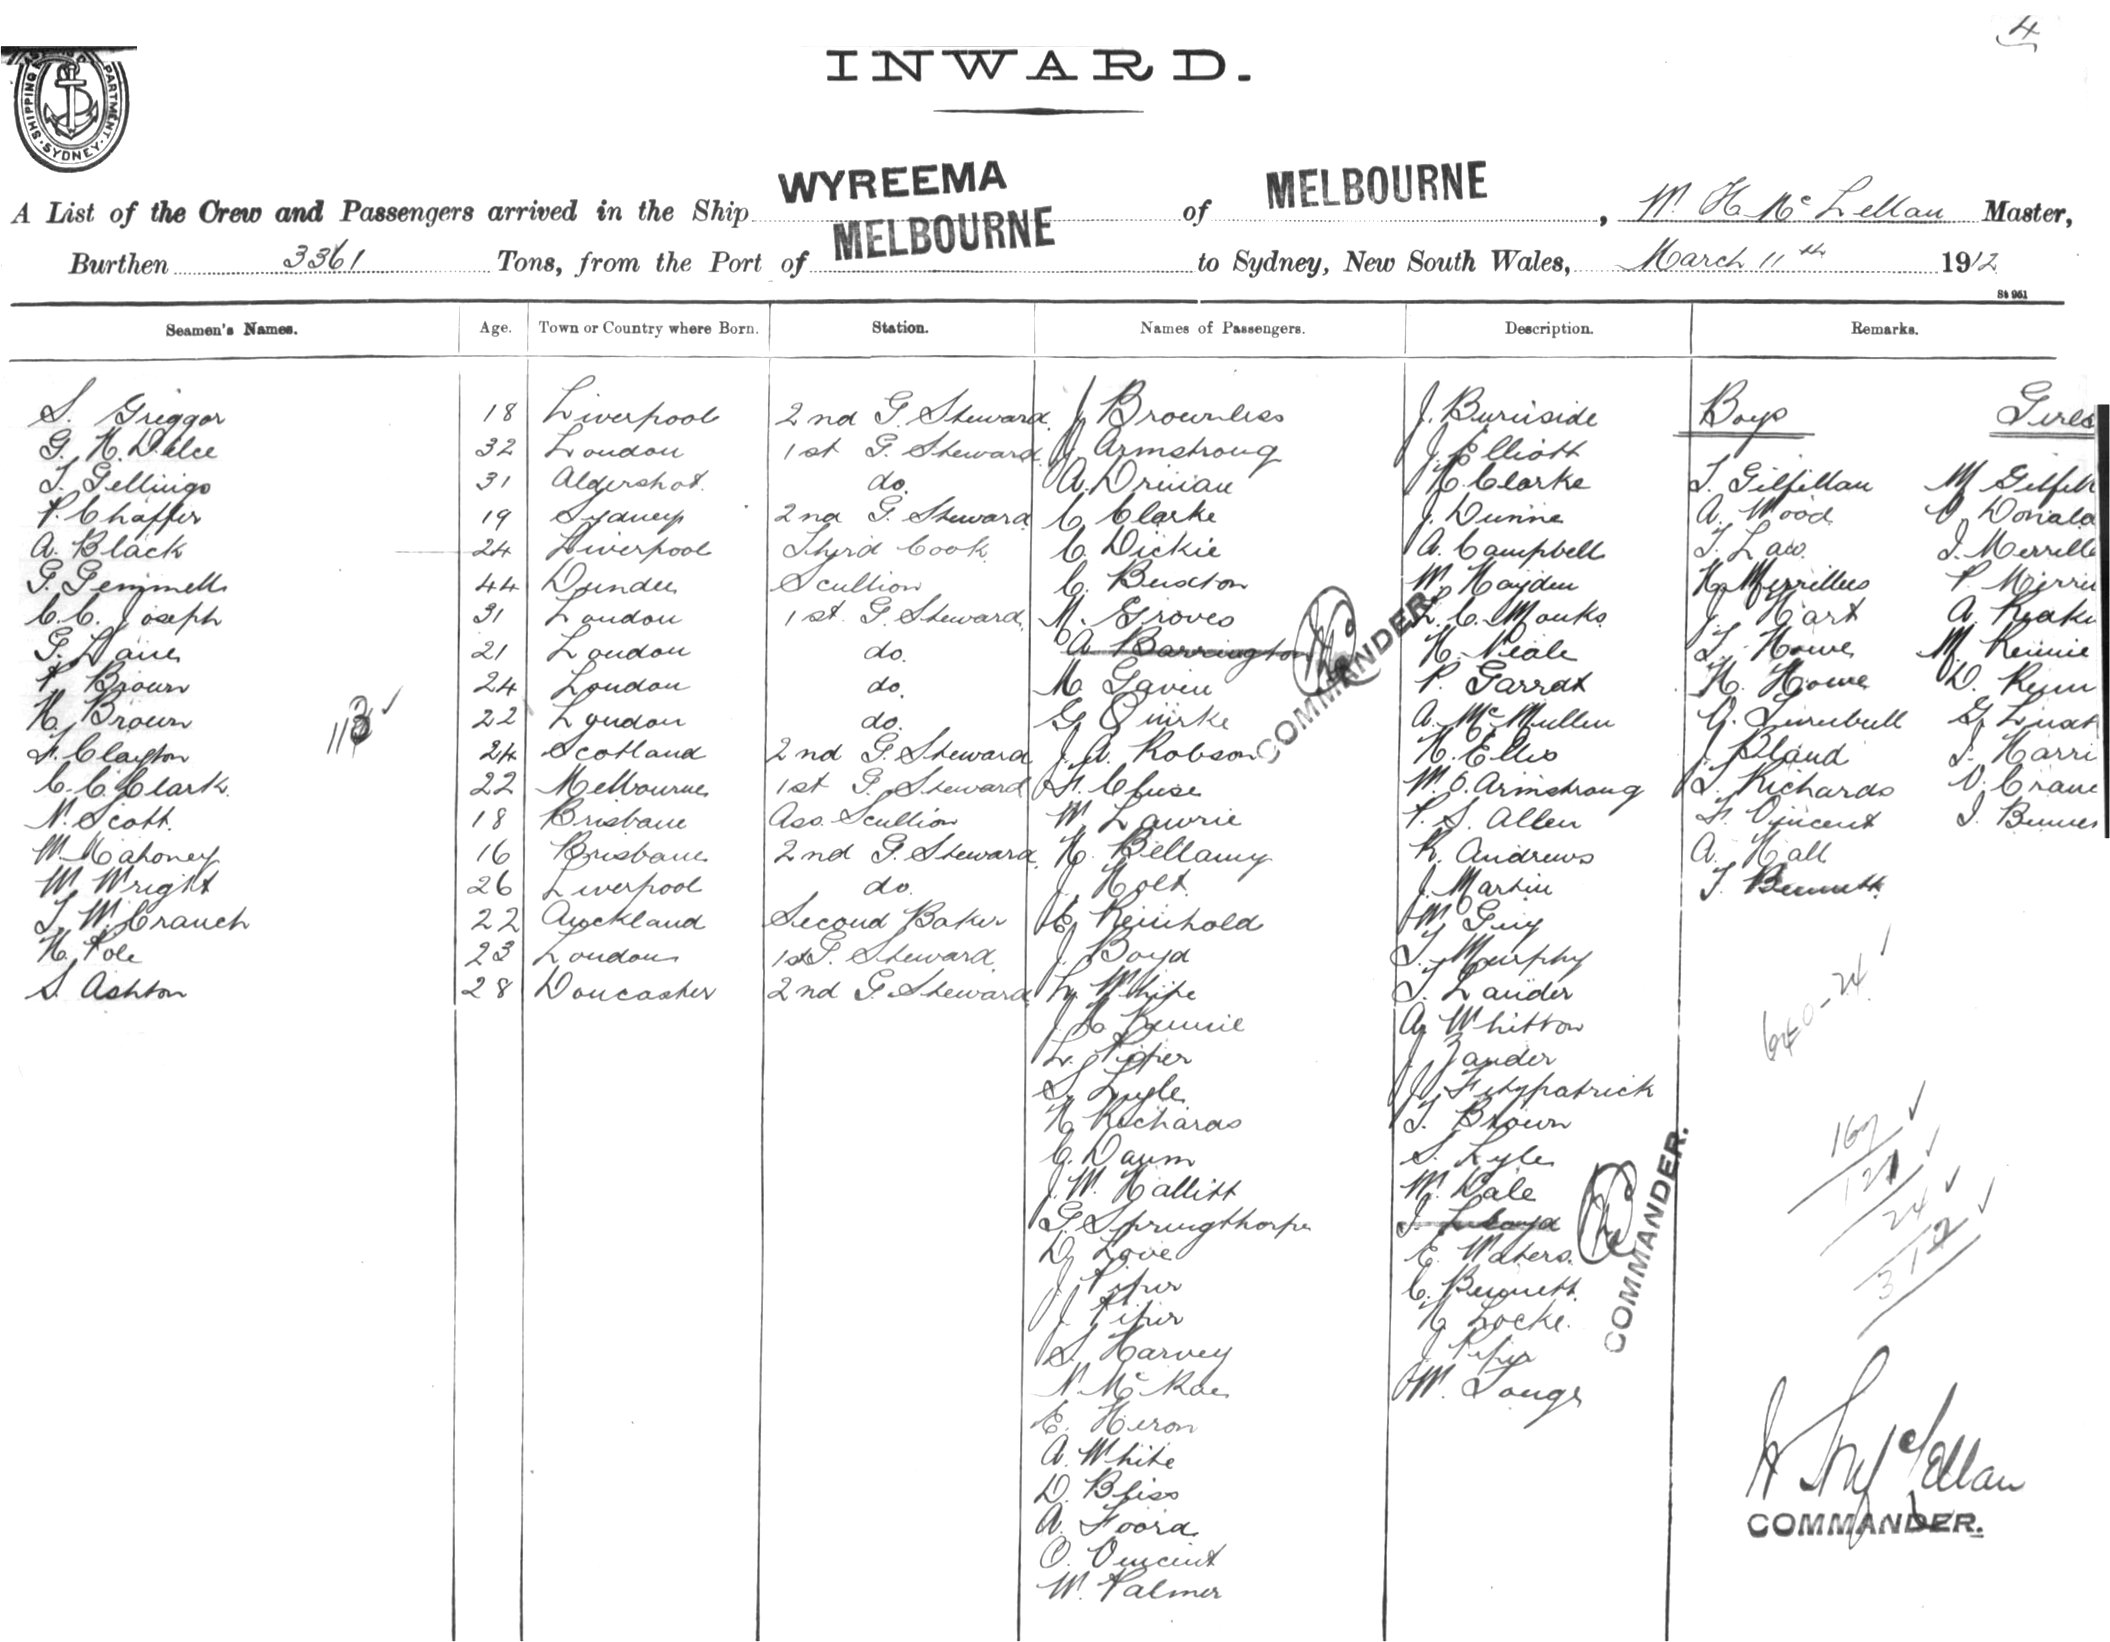 4
SHIPPING DEPARTMENT. SYDNEY
INWARD.
A List of the Crew and Passengers arrived in the Ship WYREEMA of MELBOURNE, W. H. Mc Lellan Master,
Burthen 3361 Tons, from the Port of MELBOURNE to Sydney, New South Wales, March 11th 1912
St 951
Seamen's Names. Age. Town or Country where Born. Station. Names of Passengers. Description. Remarks.
S. Griggor 18 Liverpool 2nd G. Steward J Brownless J. Burnside Boys Girls
32 London 1st G. Steward J Armstrong J. Elliott
T. Gellings 31 Aldershot. do. A. Drinan H. Clarke T. Gilfillan M Gilfill
P. Chaffer 19 Sydney 2nd G. Steward C. Clarke J. Dunne A. Wood Donald
A. Black 24 Liverpool Thyrd Cook C. Dickie A. Campbell T. Law. J. Merrille
G. Gemmell 44 Dundee Scullion C. Buxton W. Hayden H. Merrillees P. Merri
C. C. Joseph 31 London 1st G. Steward. M. Groves L. C. Monks J Hart A.
G. Dane 21 London do. A Barrington H. Neale T. Howe M. Rennie
P Brown 24 London do. M Gavin P. Garrat H. Howe D. Renn
H Brown 22 London do. G Quirke A. McMullen G. Turnbull
113
F. Clayton 24 Scotland 2nd G. Steward J. A. Robson H. Ellis J Bland J. Harri
C. C. Clark. 22 Melbourne 1st G. Steward F. Cluse W. O. Armstrong T. Richards V. Crane
N. Scott. 18 Brisbane Ass. Scullion W Lawrie P. S. Allen F. Vincent J. Bennet
W Mahoney 16 Brisbane 2nd G. Steward H. Bellamy R. Andrews A. Hall
W Wright 26 Liverpool do. J Holt. J. Martin T. Bennett
T. W. Crauch 22 Auckland Second Baker E. Reinhold W. Guy
H. Pole 23 London 1st G. Steward J. Boyd T. Murphy
S. Ashton 28 Doncaster 2nd G. Steward L. White T. Lander
J. Rennie A. Whitton
L. Piper J Zander
S. Lyle J. Fitzpatrick
H Richards T. Brown
C. Daum S. Lyle
J. W. Hallitt W. Dale
G. Springthorpe
D. Love E. Waters.
J. Piper C. Bennett.
J. Piper H Locke.
S. Harvey J Piper
N. McRae W. Tonge
E. Heron
A. White
D. Bliss
A. Foord
O. Vincent
W. Palmer
COMMANDER.
COMMANDER.
640-24
167
121
24
312
McLellan
COMMANDER.